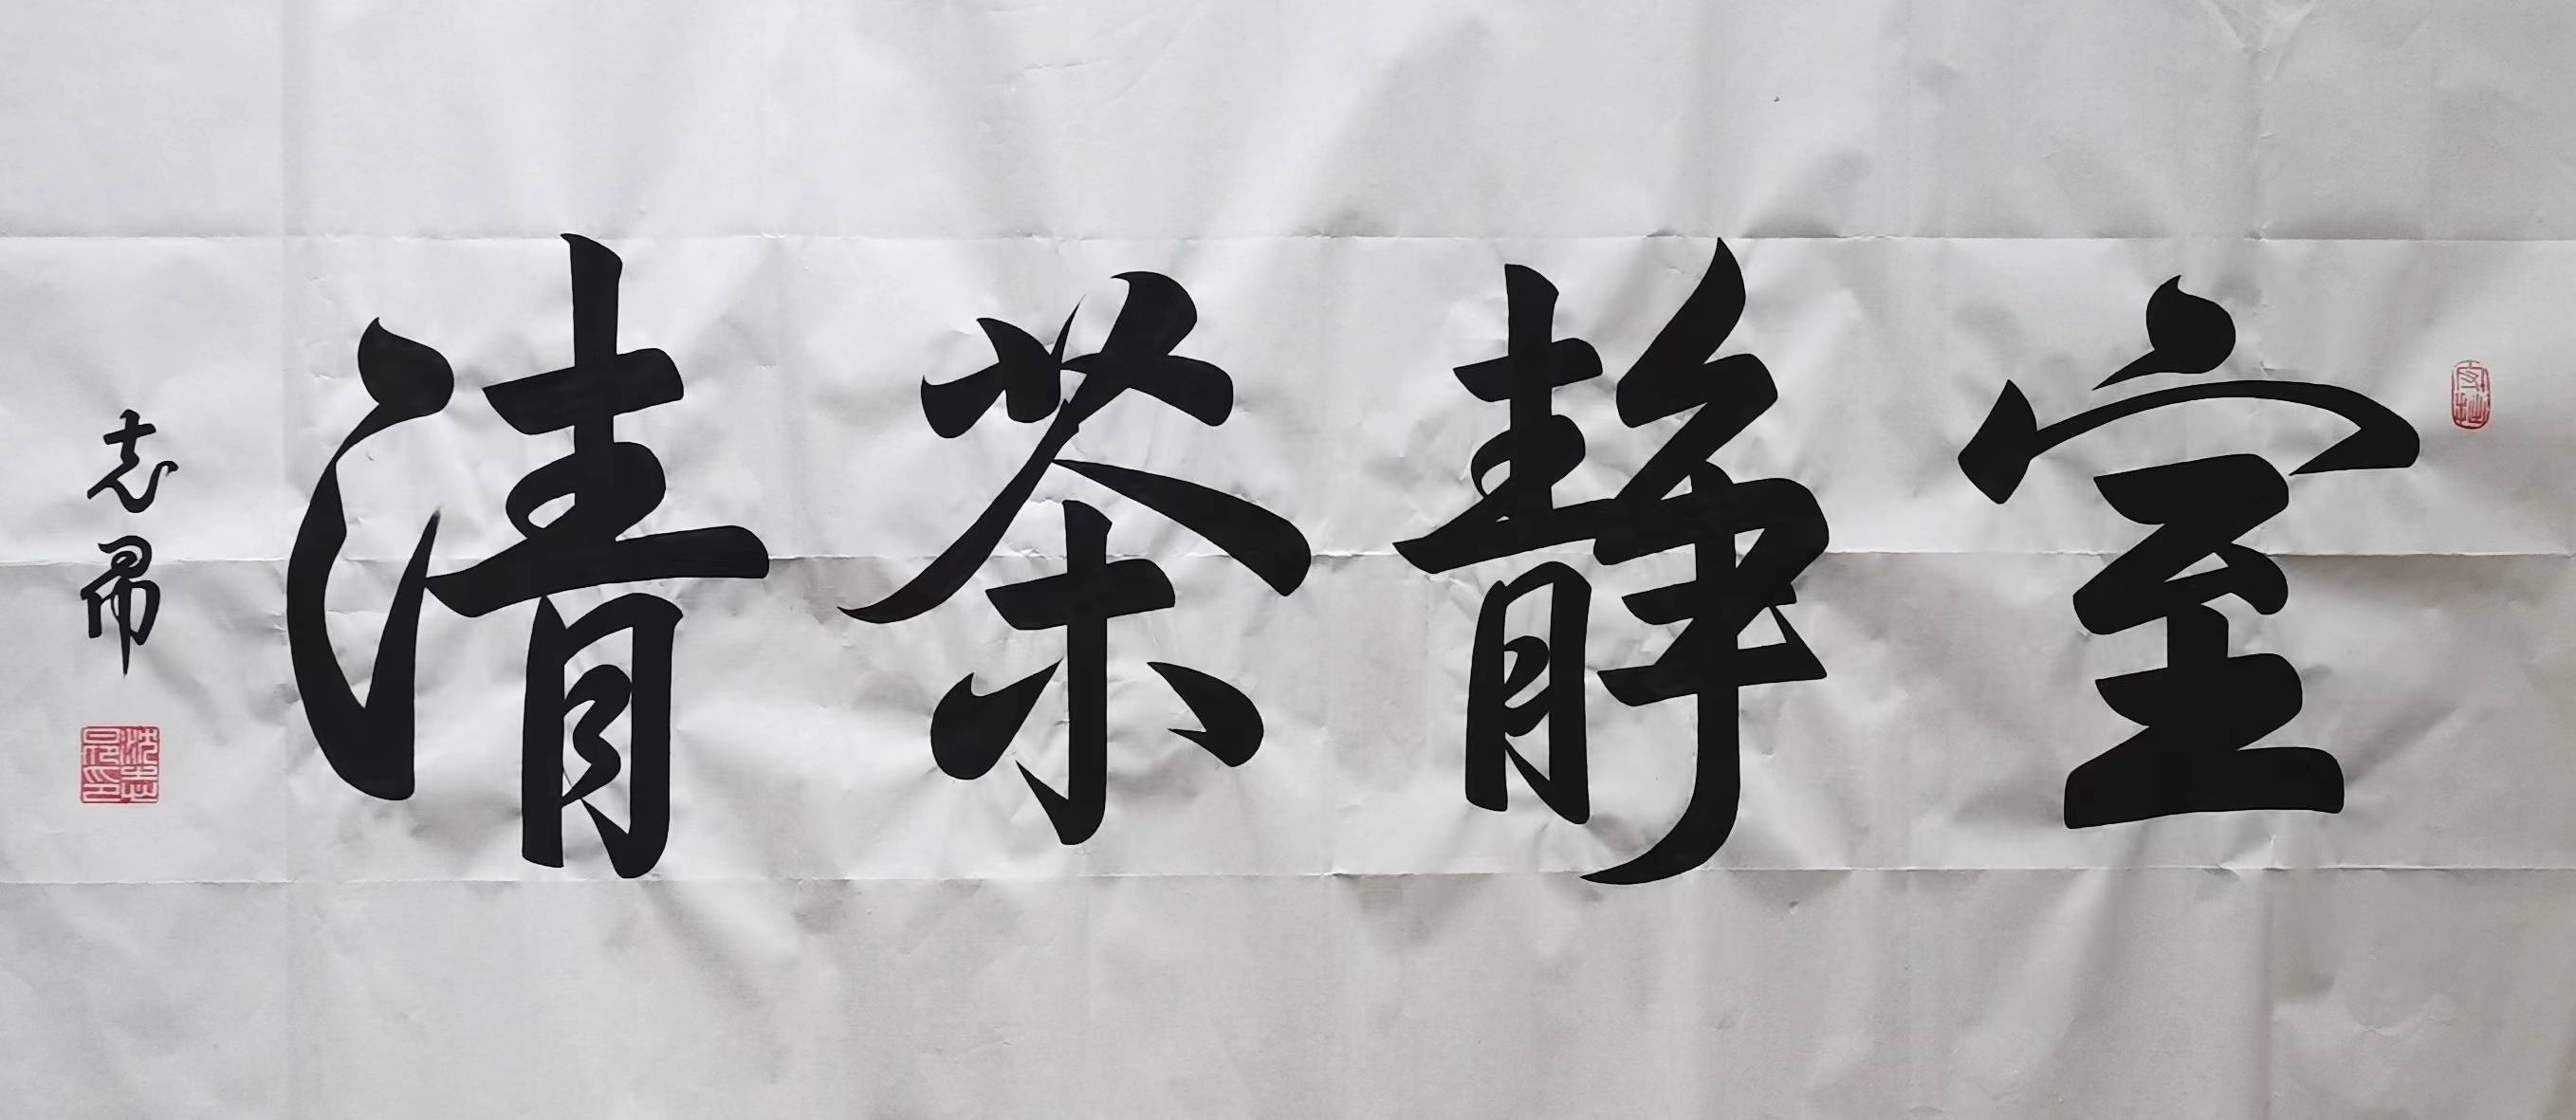 室静茶清
志昂